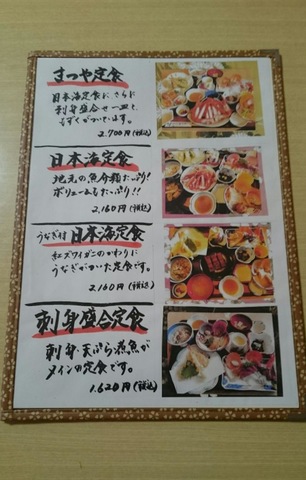 まつや定食
日本海定食にさらに
刺身盛合せ一皿と
もずくがついています。
2,700円(税込)
日本海定食
地元の魚介類たっぷり!
ボリュームもたっぷり!!
2,160円(税込)
うなぎ付 日本海定食
紅ズワイガニのかわりに
うなぎがついた定食です。
2,160円(税込)
刺身盛合定食
刺身・天ぷら・煮魚が
メインの定食です。
1,620円(税込)